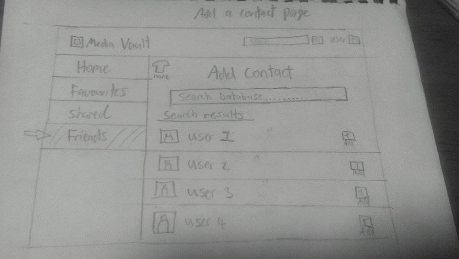 Add a contact page
Media Vault
user
Home
Favourites
Shared
Friends
HOME
Add Contact
Search Database............
Search results:
user 1
user 2
user 3
user 4